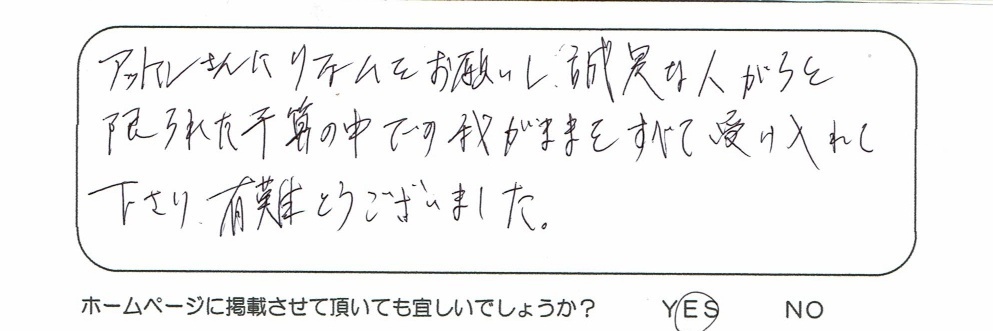 アットイレさんにリフォームをお願いし、誠実な人がらと
限られた予算の中での我がままをすべて受け入れて
下さり、有難とうございました。
ホームページに掲載させて頂いても宜しいでしょうか? YES NO